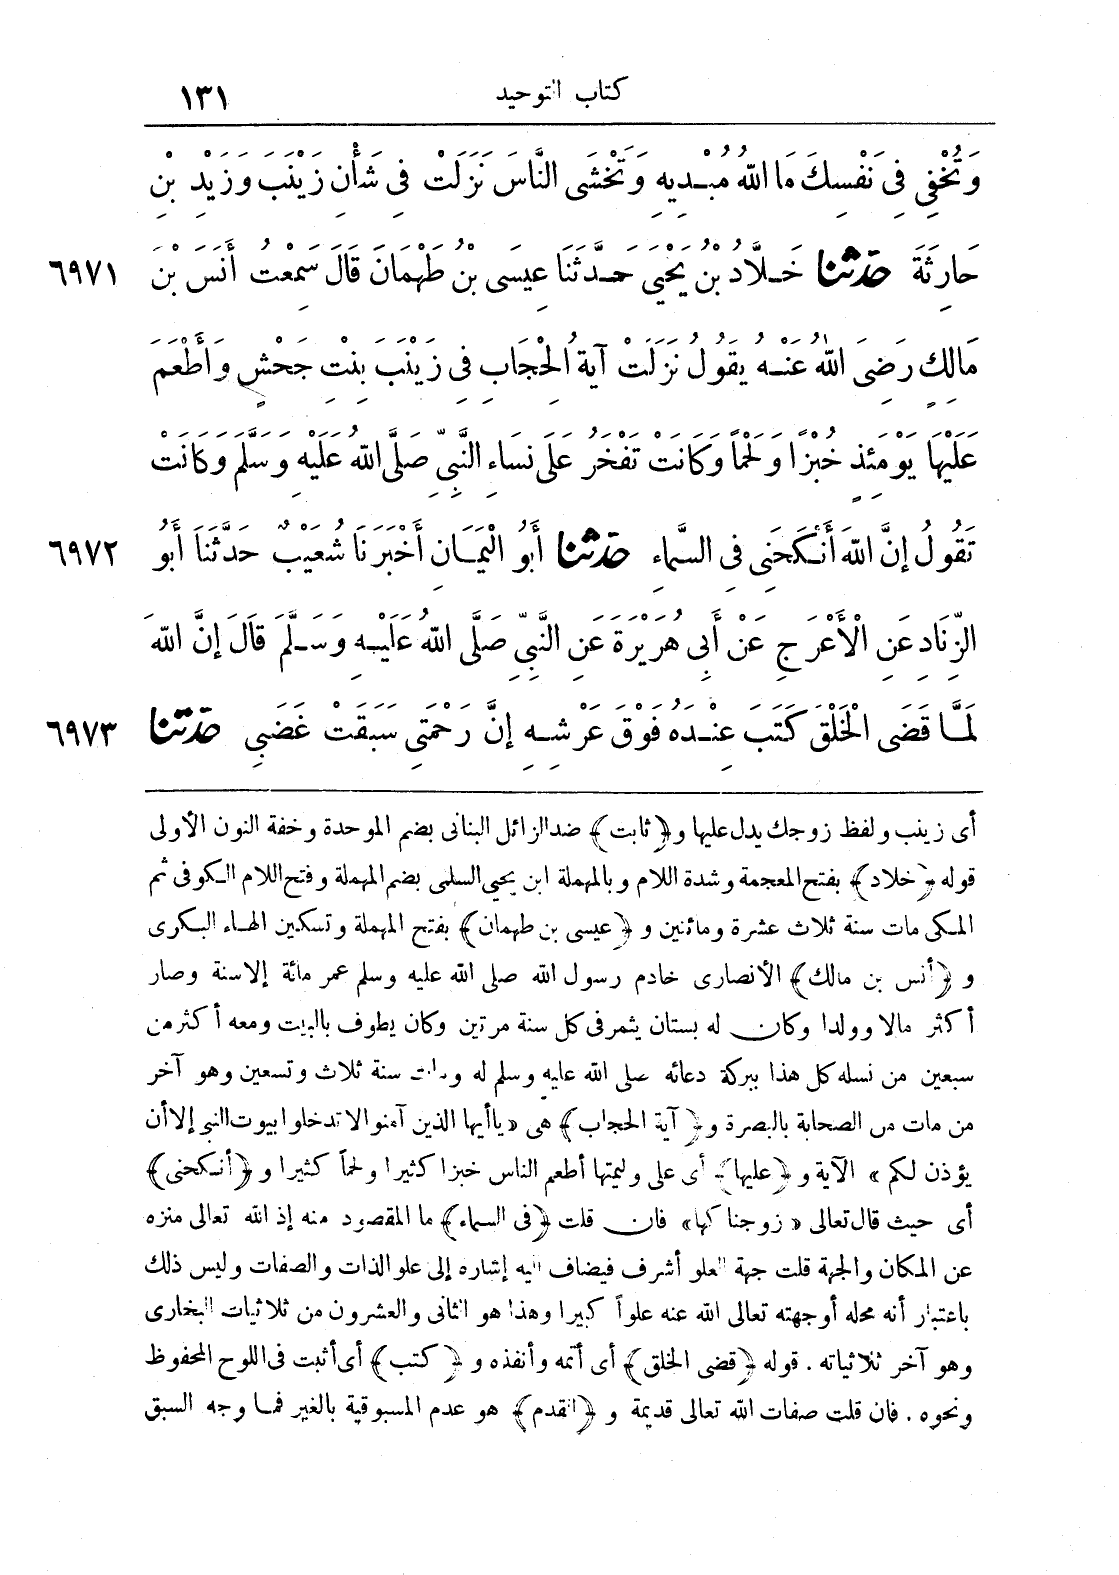 كتاب التوحيد ١٣١
وَتُخْفِى فِى نَفْسِكَ مَا اللهُ مُبْدِيهِ وَتَخْشَى النَّاسَ نَزَلَتْ فِى شَأْنِ زَيْنَبَ وَزَيْدِ بْنِ
حَارِثَةَ حدثنا خَلَّادُ بْنُ يَحْيَى حَدَّثَنَا عِيسَى بْنُ طَهْمَانَ قَالَ سَمِعْتُ أَنَسَ بْنَ ٦٩٧١
مَالِكٍ رَضِىَ اللهُ عَنْهُ يَقُولُ نَزَلَتْ آيَةُ الْحِجَابِ فِى زَيْنَبَ بِنْتِ جَحْشٍ وَأَطْعَمَ
عَلَيْهَا يَوْمَئِذٍ خُبْزًا وَلَحْمًا وَكَانَتْ تَفْخَرُ عَلَى نِسَاءِ النَّبِىِّ صَلَّى اللهُ عَلَيْهِ وَسَلَّمَ وَكَانَتْ
تَقُولُ إِنَّ اللهَ أَنْكَحَنِى فِى السَّمَاءِ حدثنا أَبُو الْيَمَانِ أَخْبَرَنَا شُعَيْبٌ حَدَّثَنَا أَبُو ٦٩٧٢
الزِّنَادِ عَنِ الْأَعْرَجِ عَنْ أَبِى هُرَيْرَةَ عَنِ النَّبِىِّ صَلَّى اللهُ عَلَيْهِ وَسَلَّمَ قَالَ إِنَّ اللهَ
لَمَّا قَضَى الْخَلْقَ كَتَبَ عِنْدَهُ فَوْقَ عَرْشِهِ إِنَّ رَحْمَتِى سَبَقَتْ غَضَبِى حدثنا ٦٩٧٣
أى زينب ولفظ زوجك يدل عليها و﴿ثابت﴾ ضد الزائل البنانى بضم الموحدة وخفة النون الأولى
قوله ﴿خلاد﴾ بفتح المعجمة وشدة اللام وبالمهملة ابن يحيى السلمى بضم المهملة وفتح اللام الكوفى ثم
المكى مات سنة ثلاث عشرة ومائتين و﴿عيسى بن طهمان﴾ بفتح المهملة وتسكين الهاء البكرى
و ﴿أنس بن مالك﴾ الأنصارى خادم رسول الله صلى الله عليه وسلم عمر مائة إلا سنة وصار
أكثر مالا وولدا وكان له بستان يثمر فى كل سنة مرتين وكان يطوف بالبيت ومعه أكثر من
سبعين من نسله كل هذا ببركة دعائه صلى الله عليه وسلم له ومات سنة ثلاث وتسعين وهو آخر
من مات من الصحابة بالبصرة و﴿آية الحجاب﴾ هى «ياأيها الذين آمنوا لا تدخلوا بيوت النبى إلا أن
يؤذن لكم» الآية و﴿عليها﴾ أى على وليمتها أطعم الناس خبزا كثيرا ولحماً كثيرا و﴿أنكحنى﴾
أى حيث قال تعالى «زوجناكها» فان قلت ﴿فى السماء﴾ ما المقصود منه إذ الله تعالى منزه
عن المكان والجهة قلت جهة العلو أشرف فيضاف اليه إشارة إلى علو الذات والصفات وليس ذلك
باعتبار أنه محله أوجهته تعالى الله عنه علواً كبيرا وهذا هو الثانى والعشرون من ثلاثيات البخارى
وهو آخر ثلاثياته. قوله ﴿قضى الخلق﴾ أى أتمه وأنفذه و﴿كتب﴾ أى أثبت فى اللوح المحفوظ
ونحوه. فان قلت صفات الله تعالى قديمة و﴿القدم﴾ هو عدم المسبوقية بالغير فما وجه السبق